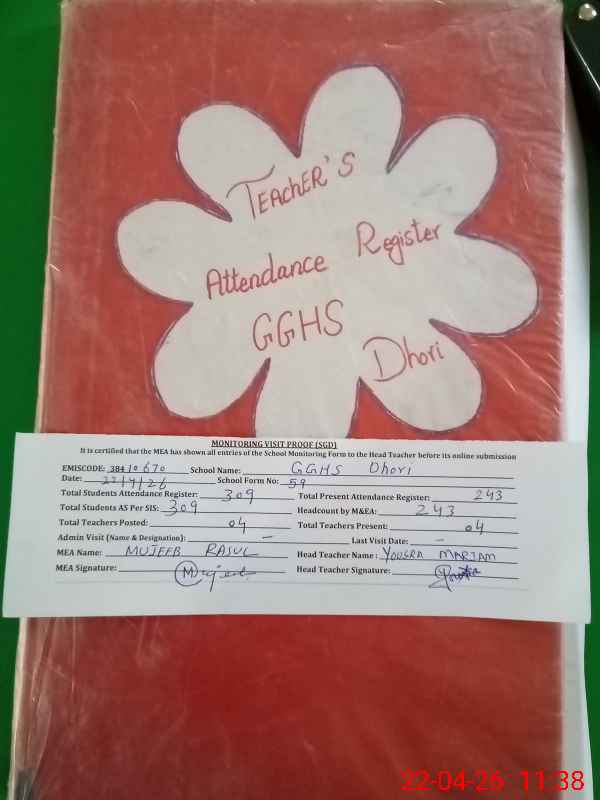 TEAchER'S
Attendance Register
GGHS
Dhori
MONITORING VISIT PROOF (SGD)
It is certified that the MEA has shown all entries of the School Monitoring Form to the Head Teacher before its online submission
EMISCODE: 38410670 School Name: GGHS Dhori
Date: 22/4/26 School Form No: 59
Total Students Attendance Register: 309 Total Present Attendance Register: 243
Total Students AS Per SIS: 309 Headcount by M&EA: 243
Total Teachers Posted: 04 Total Teachers Present: 04
Admin Visit (Name & Designation): – Last Visit Date: –
MEA Name: MUJEEB RASUL Head Teacher Name: YOUSRA MARIAM
MEA Signature: Mujeeb Head Teacher Signature:
22-04-26 11:38